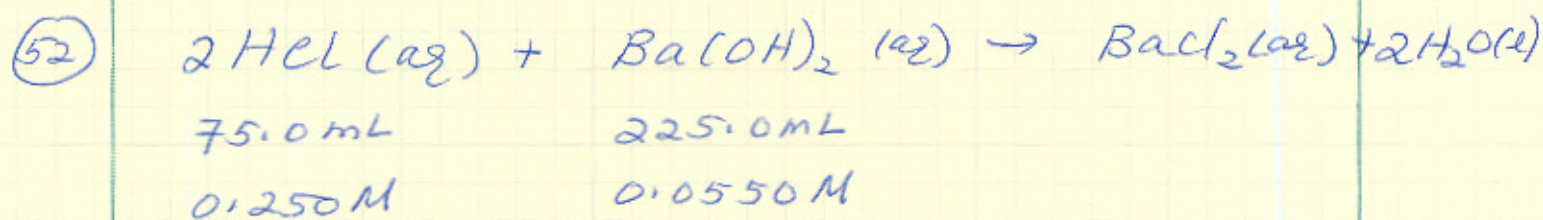 (52) 2 HCl (aq) + Ba(OH)₂ (aq) → BaCl₂(aq) + 2H₂O(l)
75.0 mL 225.0 mL
0.250 M 0.0550 M